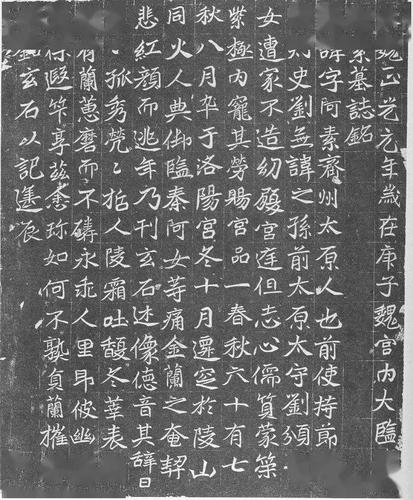 魏正光元年歲在庚子魏宮內大監
素墓誌銘
諱字阿素齊州太原人也前使持節
州史劉無諱之孫前太原太守劉頒
女遭家不造幼履宮庭但志心儒質蒙策
紫極內寵其勞賜宮品一春秋六十有七
秋八月卒于洛陽宮冬十月遷窆於陵山
同火人典御監秦阿女等痛金蘭之奄契
悲紅顏而逃年乃刊玄石述像德音其辭曰
孤秀焭焭哲人陵霜吐馥冬華表
有蘭蕙磨而不磷永乖人里即彼幽
保遐算享茲悉珍如何不熟貞蘭摧
玄石以記遷宸